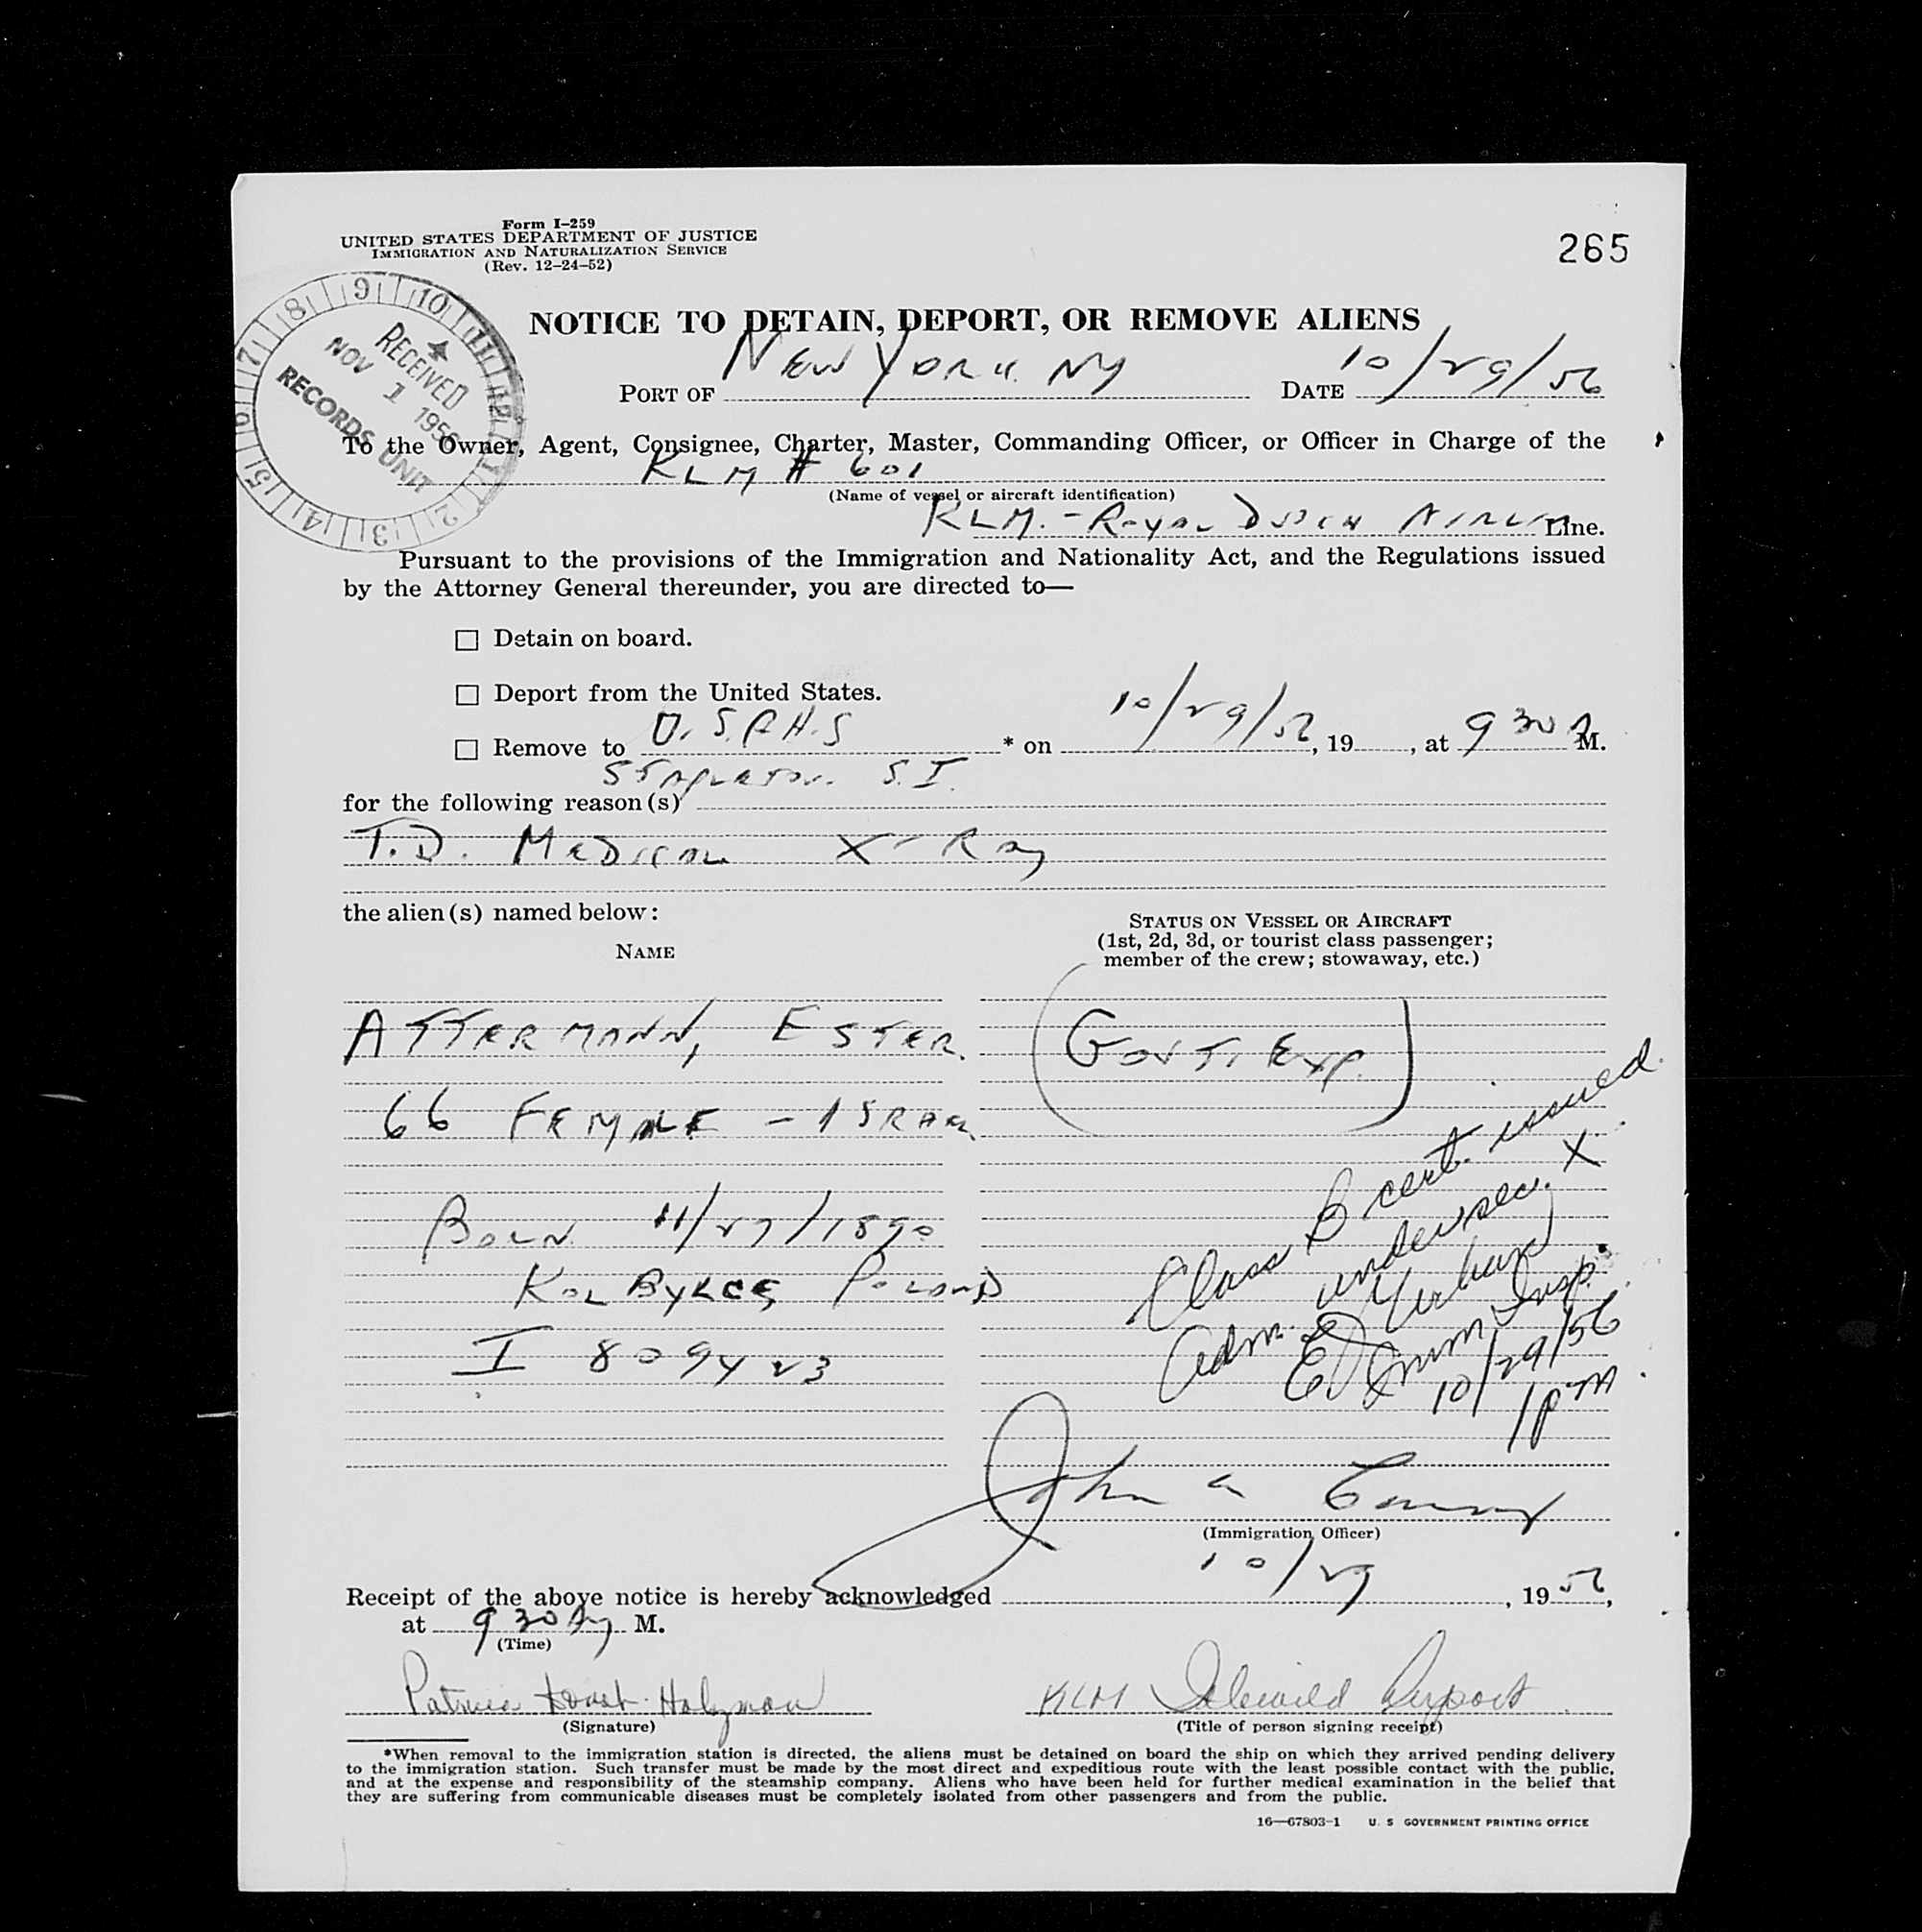 Form I–259
UNITED STATES DEPARTMENT OF JUSTICE
IMMIGRATION AND NATURALIZATION SERVICE
(Rev. 12–24–52)
265
RECEIVED
NOV 1 1956
RECORDS UNIT
1 2 3 4 5 6 7 8 9 10 11 12
NOTICE TO DETAIN, DEPORT, OR REMOVE ALIENS
PORT OF New York NY DATE 10/29/56
To the Owner, Agent, Consignee, Charter, Master, Commanding Officer, or Officer in Charge of the
KLM # 601
(Name of vessel or aircraft identification)
KLM. - Royal Dutch Airlin Line.
Pursuant to the provisions of the Immigration and Nationality Act, and the Regulations issued
by the Attorney General thereunder, you are directed to—
☐ Detain on board.
☐ Deport from the United States.
☐ Remove to U.S.P.H.S * on 10/29/56, 19 , at 9 30 A M.
Stapleton. S.I.
for the following reason(s)
T.D. Medical X-Ray
the alien(s) named below:
NAME
STATUS ON VESSEL OR AIRCRAFT
(1st, 2d, 3d, or tourist class passenger;
member of the crew; stowaway, etc.)
ATTERMANN, ESTER.
(Govt. Exp.)
66 FEMALE - ISRAEL
Born 11/27/1890
Poland
I 809423
Class B cert. issued
under sec. X
Adm.
Imm Insp.
10/29/56
1 pm
John
(Immigration Officer)
Receipt of the above notice is hereby acknowledged 10/29, 19 56,
at 9 30 M.
(Time)
Patricia Holzman
(Signature)
KLM Idlewild Airport
(Title of person signing receipt)
*When removal to the immigration station is directed, the aliens must be detained on board the ship on which they arrived pending delivery
to the immigration station. Such transfer must be made by the most direct and expeditious route with the least possible contact with the public,
and at the expense and responsibility of the steamship company. Aliens who have been held for further medical examination in the belief that
they are suffering from communicable diseases must be completely isolated from other passengers and from the public.
16—67803-1 U. S GOVERNMENT PRINTING OFFICE